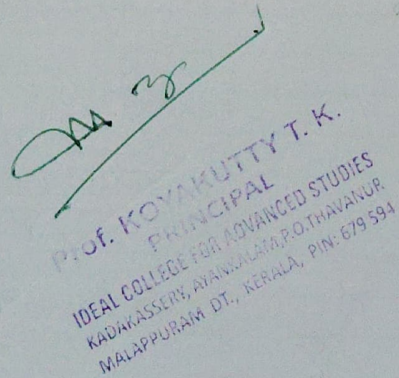 Prof. KOYAKUTTY T. K.
PRINCIPAL
IDEAL COLLEGE FOR ADVANCED STUDIES
KADAKASSERY, AYANKALAM, P.O. THAVANUR
MALAPPURAM DT., KERALA, PIN: 679 594